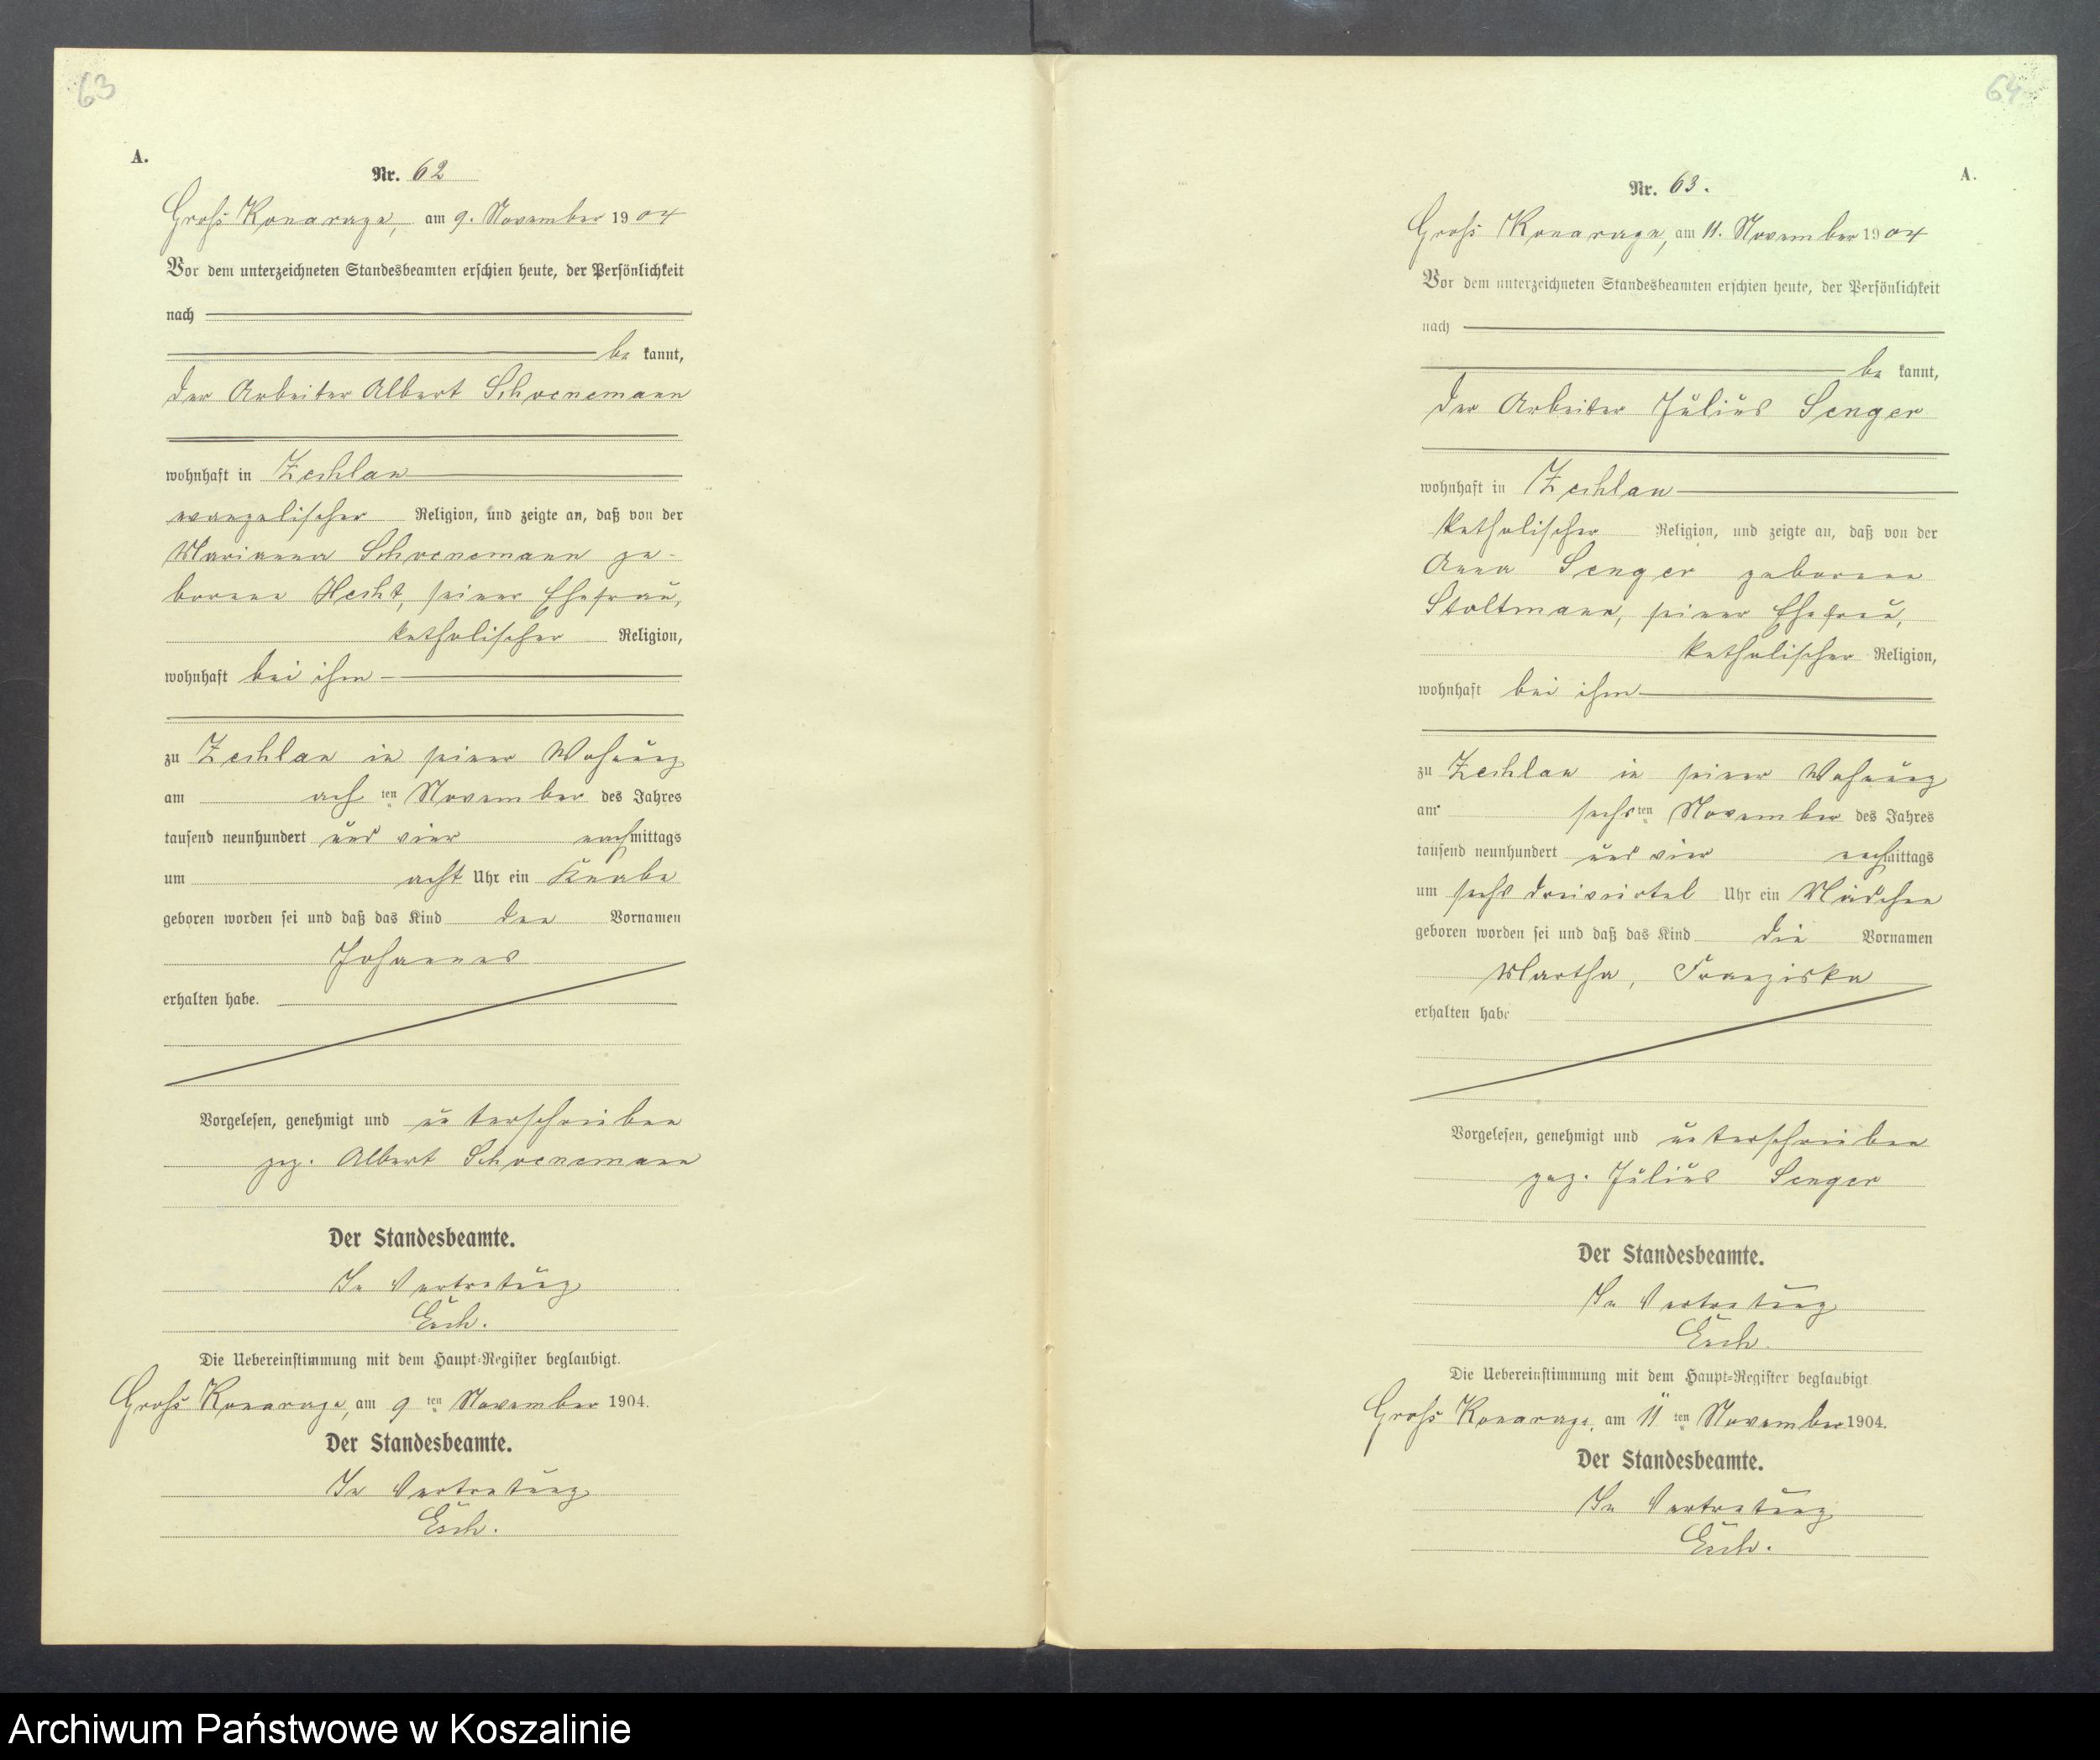 63
A.
Nr. 62
Groß Konarage, am 9. November 1904
Vor dem unterzeichneten Standesbeamten erschien heute, der Persönlichkeit
nach
be kannt,
der Arbeiter Albert Schoenemann
wohnhaft in Zechlau
evangelischer Religion, und zeigte an, daß von der
Marianna Schoenemann ge-
borene Hecht, seiner Ehefrau,
katholischer Religion,
wohnhaft bei ihm
zu Zechlau in seiner Wohnung
am ach ten November des Jahres
tausend neunhundert und vier nachmittags
um acht Uhr ein Knabe
geboren worden sei und daß das Kind den Vornamen
Johannes
erhalten habe.
Vorgelesen, genehmigt und unterschrieben
gez. Albert Schoenemann
Der Standesbeamte.
In Vertretung
Esch.
Die Uebereinstimmung mit dem Haupt-Register beglaubigt.
Groß Konarage, am 9 ten November 1904.
Der Standesbeamte.
In Vertretung
Esch.
64
A.
Nr. 63.
Groß Konarage, am 11. November 1904
Vor dem unterzeichneten Standesbeamten erschien heute, der Persönlichkeit
nach
be kannt,
der Arbeiter Julius Senger
wohnhaft in Zechlau
katholischer Religion, und zeigte an, daß von der
Anna Senger geborene
Stoltmann, seiner Ehefrau,
katholischer Religion,
wohnhaft bei ihm
zu Zechlau in seiner Wohnung
am sechs ten November des Jahres
tausend neunhundert und vier nachmittags
um sechs dreiviertel Uhr ein Mädchen
geboren worden sei und daß das Kind die Vornamen
Martha, Franziska
erhalten habe
Vorgelesen, genehmigt und unterschrieben
gez. Julius Senger
Der Standesbeamte.
In Vertretung
Esch
Die Uebereinstimmung mit dem Haupt-Register beglaubigt
Groß Konarage, am 11 ten November 1904.
Der Standesbeamte.
In Vertretung
Esch.
Archiwum Państwowe w Koszalinie